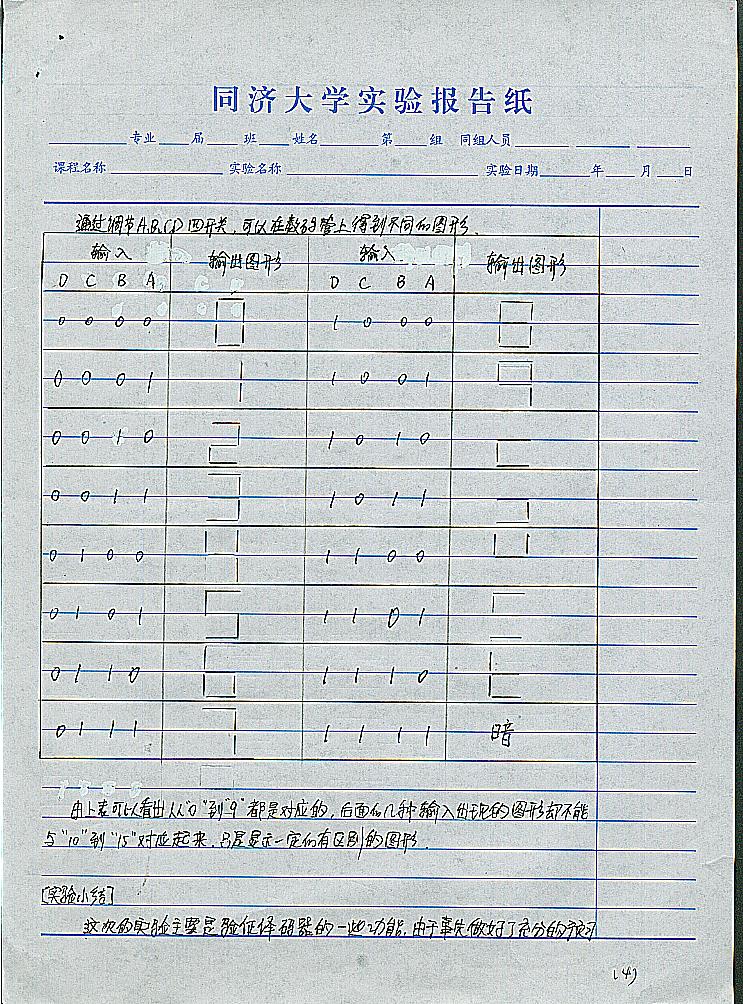 同济大学实验报告纸
专业 届 班 姓名 第 组 同组人员
课程名称 实验名称 实验日期 年 月 日
通过调节A.B.C.D四开关,可以在数码管上得到不同的图形.
输入 输出图形 输入 输出图形
D C B A D C B A
0 0 0 0 1 0 0 0
0 0 0 1 1 0 0 1
0 0 1 0 1 0 1 0
0 0 1 1 1 0 1 1
0 1 0 0 1 1 0 0
0 1 0 1 1 1 0 1
0 1 1 0 1 1 1 0
0 1 1 1 1 1 1 1 暗
由上表可以看出从"0"到"9"都是对应的,后面的几种输入出现的图形却不能
与"10"到"15"对应起来,只是显示一定的有区别的图形.
[实验小结]
这次的实验主要是验证译码器的一些功能,由于事先做好了充分的预习
(4)